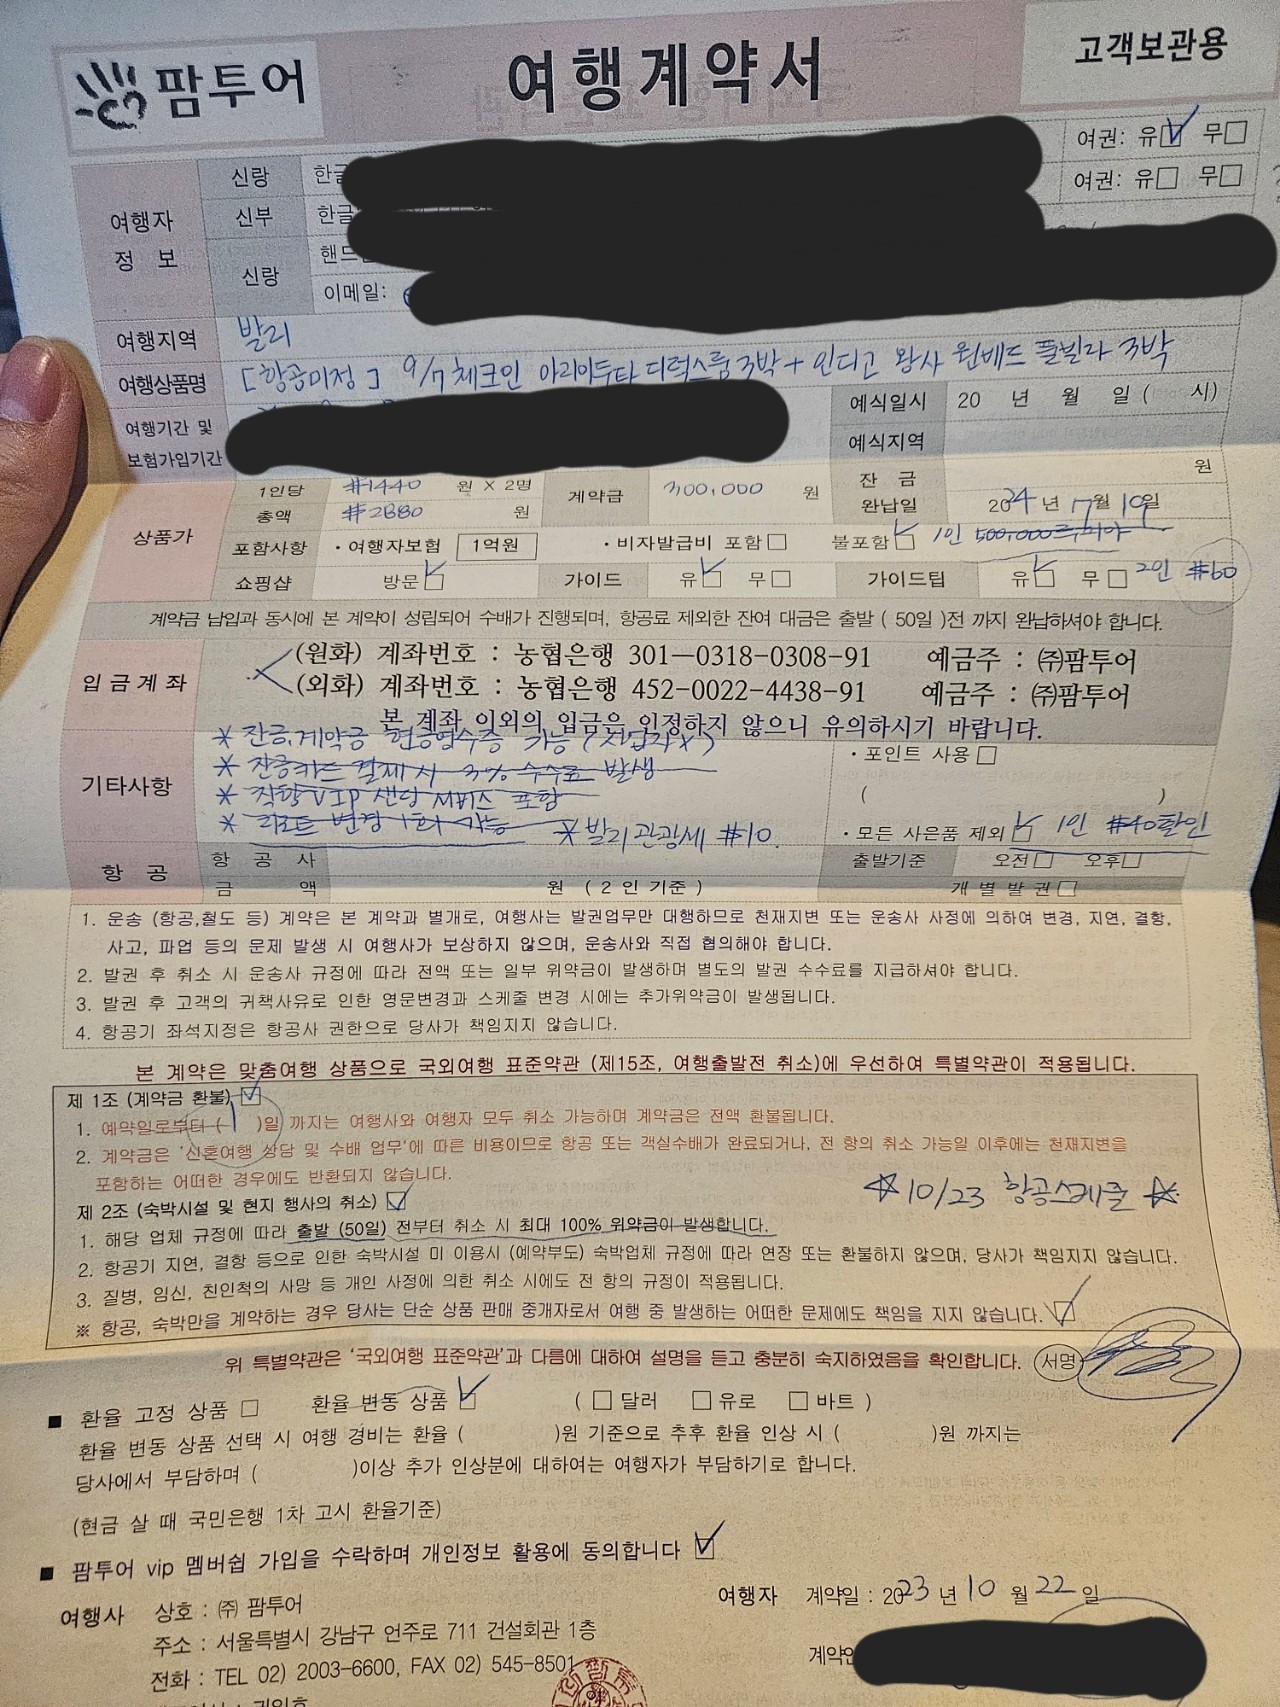 팜투어
여행계약서
고객보관용
여행자 정 보
신랑 한글 여권: 유☑ 무□
신부 한글 여권: 유□ 무□
신랑 핸드
이메일:
여행지역 발리
여행상품명 [항공미정] 9/7 체크인 아리아두타 디럭스룸 3박 + 인디고 왕사 원베드 풀빌라 3박
여행기간 및 보험가입기간
예식일시 20 년 월 일 ( 시)
예식지역
상품가 1인당 #1440 원 X 2명 계약금 300,000 원 잔 금 원
총액 #2880 원 완납일 2024년 7월 19일
포함사항 · 여행자보험 1억원 · 비자발급비 포함□ 불포함☑ 1인 500,000루피아
쇼핑샵 방문☑ 가이드 유☑ 무□ 가이드팁 유☑ 무□ 2인 #60
계약금 납입과 동시에 본 계약이 성립되어 수배가 진행되며, 항공료 제외한 잔여 대금은 출발 ( 50일 )전 까지 완납하셔야 합니다.
입금계좌 (원화) 계좌번호 : 농협은행 301—0318-0308-91 예금주 : ㈜팜투어
(외화) 계좌번호 : 농협은행 452-0022-4438-91 예금주 : ㈜팜투어
본 계좌 이외의 입금은 인정하지 않으니 유의하시기 바랍니다.
기타사항 * 잔금,계약금 현금영수증 가능 (사업자x)
* 잔금카드 결제시 3% 수수료 발생
* 직항 VIP 샌딩 서비스 포함
* 리조트 변경 1회 가능 * 발리관광세 #10.
· 포인트 사용□
( )
· 모든 사은품 제외☑ 1인 #40할인
항 공 항 공 사 출발기준 오전□ 오후□
금 액 원 ( 2 인 기 준 ) 개 별 발 권□
1. 운송 (항공,철도 등) 계약은 본 계약과 별개로, 여행사는 발권업무만 대행하므로 천재지변 또는 운송사 사정에 의하여 변경, 지연, 결항,
사고, 파업 등의 문제 발생 시 여행사가 보상하지 않으며, 운송사와 직접 협의해야 합니다.
2. 발권 후 취소 시 운송사 규정에 따라 전액 또는 일부 위약금이 발생하며 별도의 발권 수수료를 지급하셔야 합니다.
3. 발권 후 고객의 귀책사유로 인한 영문변경과 스케줄 변경 시에는 추가위약금이 발생됩니다.
4. 항공기 좌석지정은 항공사 권한으로 당사가 책임지지 않습니다.
본 계약은 맞춤여행 상품으로 국외여행 표준약관 (제15조, 여행출발전 취소)에 우선하여 특별약관이 적용됩니다.
제 1조 (계약금 환불)☑
1. 예약일로부터 ( 1 )일 까지는 여행사와 여행자 모두 취소 가능하며 계약금은 전액 환불됩니다.
2. 계약금은 '신혼여행 상담 및 수배 업무'에 따른 비용이므로 항공 또는 객실수배가 완료되거나, 전 항의 취소 가능일 이후에는 천재지변을
포함하는 어떠한 경우에도 반환되지 않습니다.
제 2조 (숙박시설 및 현지 행사의 취소)☑
☆10/23 항공스케줄 ☆
1. 해당 업체 규정에 따라 출발 (50일) 전부터 취소 시 최대 100% 위약금이 발생합니다.
2. 항공기 지연, 결항 등으로 인한 숙박시설 미 이용시 (예약부도) 숙박업체 규정에 따라 연장 또는 환불하지 않으며, 당사가 책임지지 않습니다.
3. 질병, 임신, 친인척의 사망 등 개인 사정에 의한 취소 시에도 전 항의 규정이 적용됩니다.
※ 항공, 숙박만을 계약하는 경우 당사는 단순 상품 판매 중개자로서 여행 중 발생하는 어떠한 문제에도 책임을 지지 않습니다.☑
위 특별약관은 '국외여행 표준약관'과 다름에 대하여 설명을 듣고 충분히 숙지하였음을 확인합니다. 서명
■ 환율 고정 상품 □ 환율 변동 상품 ☑ ( □ 달러 □ 유로 □ 바트 )
환율 변동 상품 선택 시 여행 경비는 환율 ( )원 기준으로 추후 환율 인상 시 ( )원 까지는
당사에서 부담하며 ( )이상 추가 인상분에 대하여는 여행자가 부담하기로 합니다.
(현금 살 때 국민은행 1차 고시 환율기준)
■ 팜투어 vip 멤버쉽 가입을 수락하며 개인정보 활용에 동의합니다 ☑
여행사 상호 : ㈜ 팜투어
여행자 계약일 : 2023년 10월 22일
주소 : 서울특별시 강남구 언주로 711 건설회관 1층
전화 : TEL 02) 2003-6600, FAX 02) 545-8501
계약인